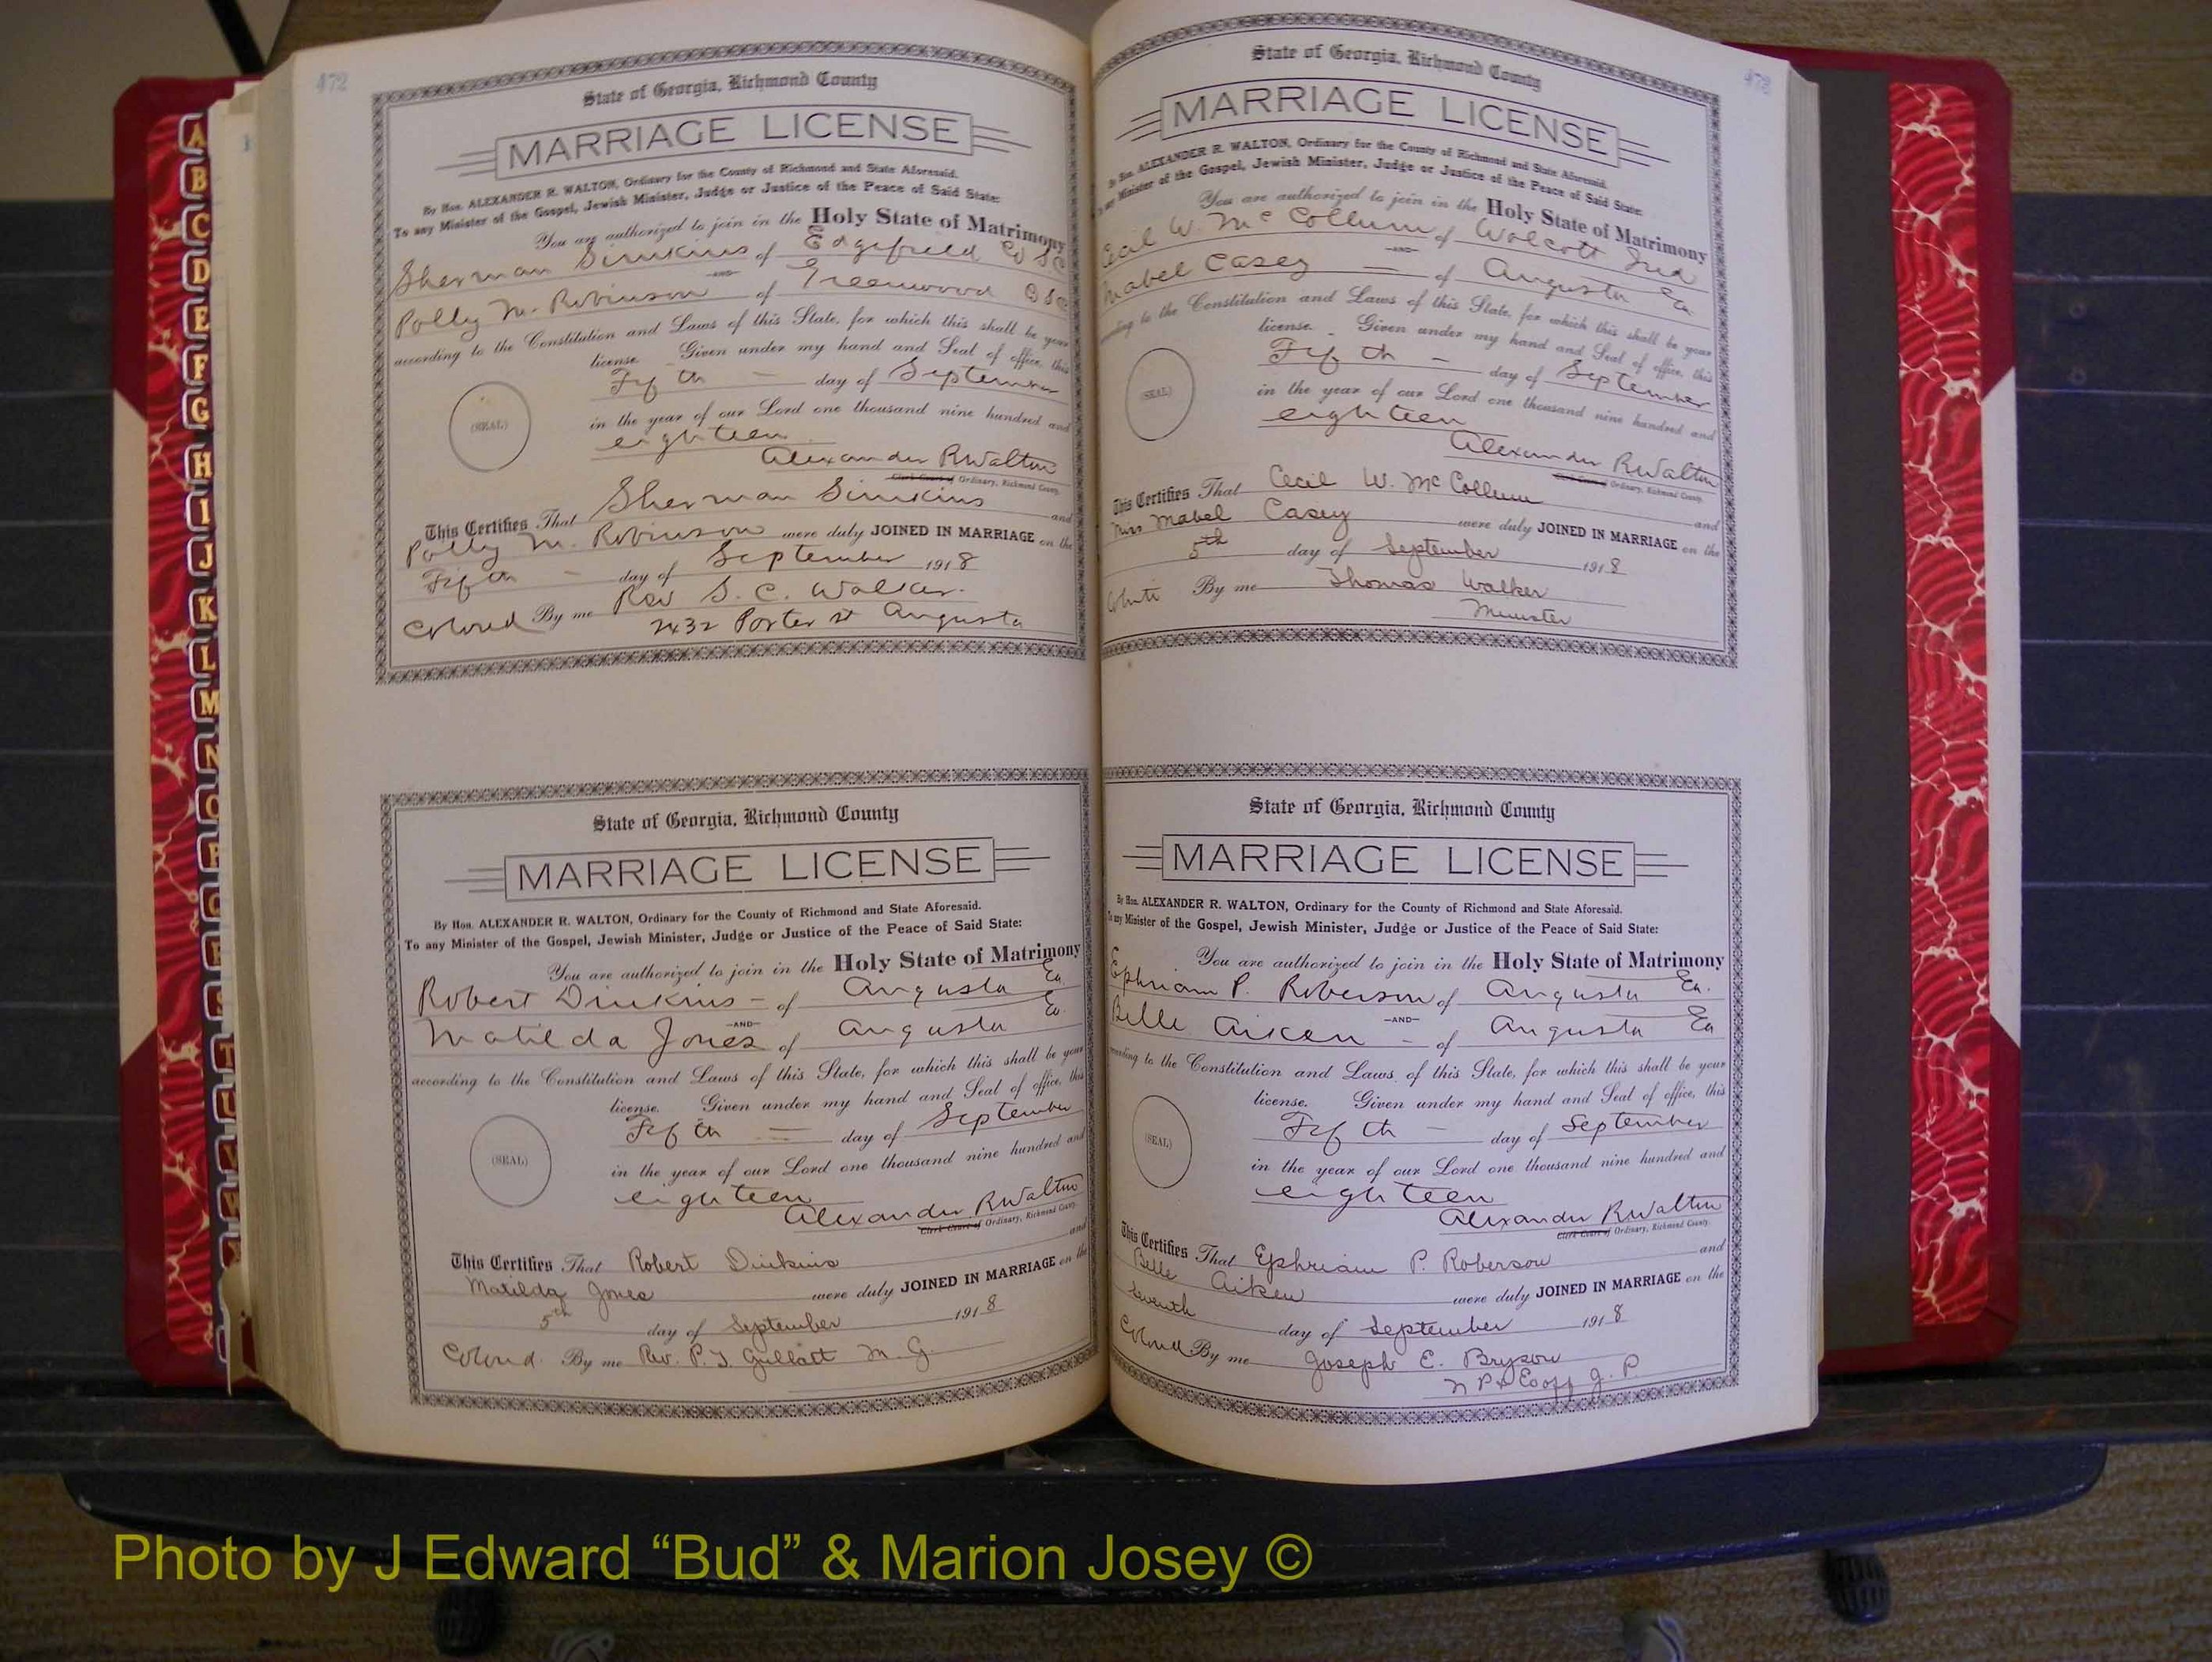 472
State of Georgia, Richmond County
MARRIAGE LICENSE
By Hon. ALEXANDER R. WALTON, Ordinary for the County of Richmond and State Aforesaid.
To any Minister of the Gospel, Jewish Minister, Judge or Justice of the Peace of Said State:
You are authorized to join in the Holy State of Matrimony
Sherman Simkins of Edgefield Co S.C
—AND—
Polly M. Robinson of Greenwood Co S C
according to the Constitution and Laws of this State, for which this shall be your
license. Given under my hand and Seal of office, this
Fifth — day of September
(SEAL)
in the year of our Lord one thousand nine hundred and
eighteen
Alexander R Walton
Clerk Court of Ordinary, Richmond County.
This Certifies That Sherman Simkins and
Polly M. Robinson were duly JOINED IN MARRIAGE on the
Fifth — day of September 1918
Colored By me Rev S. C. Walker.
2432 Porter st Augusta
State of Georgia, Richmond County
MARRIAGE LICENSE
By Hon. ALEXANDER R. WALTON, Ordinary for the County of Richmond and State Aforesaid.
To any Minister of the Gospel, Jewish Minister, Judge or Justice of the Peace of Said State:
You are authorized to join in the Holy State of Matrimony
Robert Dinkins — of Augusta Ga.
—AND—
Matilda Jones of Augusta Ga.
according to the Constitution and Laws of this State, for which this shall be your
license. Given under my hand and Seal of office, this
Fifth — day of September
(SEAL)
in the year of our Lord one thousand nine hundred and
eighteen
Alexander R Walton
Clerk Court of Ordinary, Richmond County.
This Certifies That Robert Dinkins and
Matilda Jones were duly JOINED IN MARRIAGE on the
5th day of September 1918
Colored. By me Rev. P. J. M. G.
473
State of Georgia, Richmond County
MARRIAGE LICENSE
By Hon. ALEXANDER R. WALTON, Ordinary for the County of Richmond and State Aforesaid.
To any Minister of the Gospel, Jewish Minister, Judge or Justice of the Peace of Said State:
You are authorized to join in the Holy State of Matrimony
Cecil W. McCollum of Wolcott Ind
—AND—
Mabel Casey — of Augusta Ga.
according to the Constitution and Laws of this State, for which this shall be your
license. Given under my hand and Seal of office, this
Fifth — day of September
(SEAL)
in the year of our Lord one thousand nine hundred and
eighteen
Alexander R Walton
Clerk Court of Ordinary, Richmond County.
This Certifies That Cecil W. McCollum and
Miss Mabel Casey were duly JOINED IN MARRIAGE on the
5th day of September 1918
White By me Thomas Walker
Minister
State of Georgia, Richmond County
MARRIAGE LICENSE
By Hon. ALEXANDER R. WALTON, Ordinary for the County of Richmond and State Aforesaid.
To any Minister of the Gospel, Jewish Minister, Judge or Justice of the Peace of Said State:
You are authorized to join in the Holy State of Matrimony
Ephriam P. Roberson of Augusta Ga.
—AND—
Belle Aiken — of Augusta Ga
according to the Constitution and Laws of this State, for which this shall be your
license. Given under my hand and Seal of office, this
Fifth — day of September
(SEAL)
in the year of our Lord one thousand nine hundred and
eighteen
Alexander R Walton
Clerk Court of Ordinary, Richmond County.
This Certifies That Ephriam P. Roberson and
Belle Aiken were duly JOINED IN MARRIAGE on the
seventh day of September 1918
Colored By me Joseph E. Bryson
N P & Ex off J. P.
A
B
C
D
E
F
G
H
I
J
K
L
M
N
O
P
Q
R
S
T
U
V
W
Photo by J Edward “Bud” & Marion Josey ©